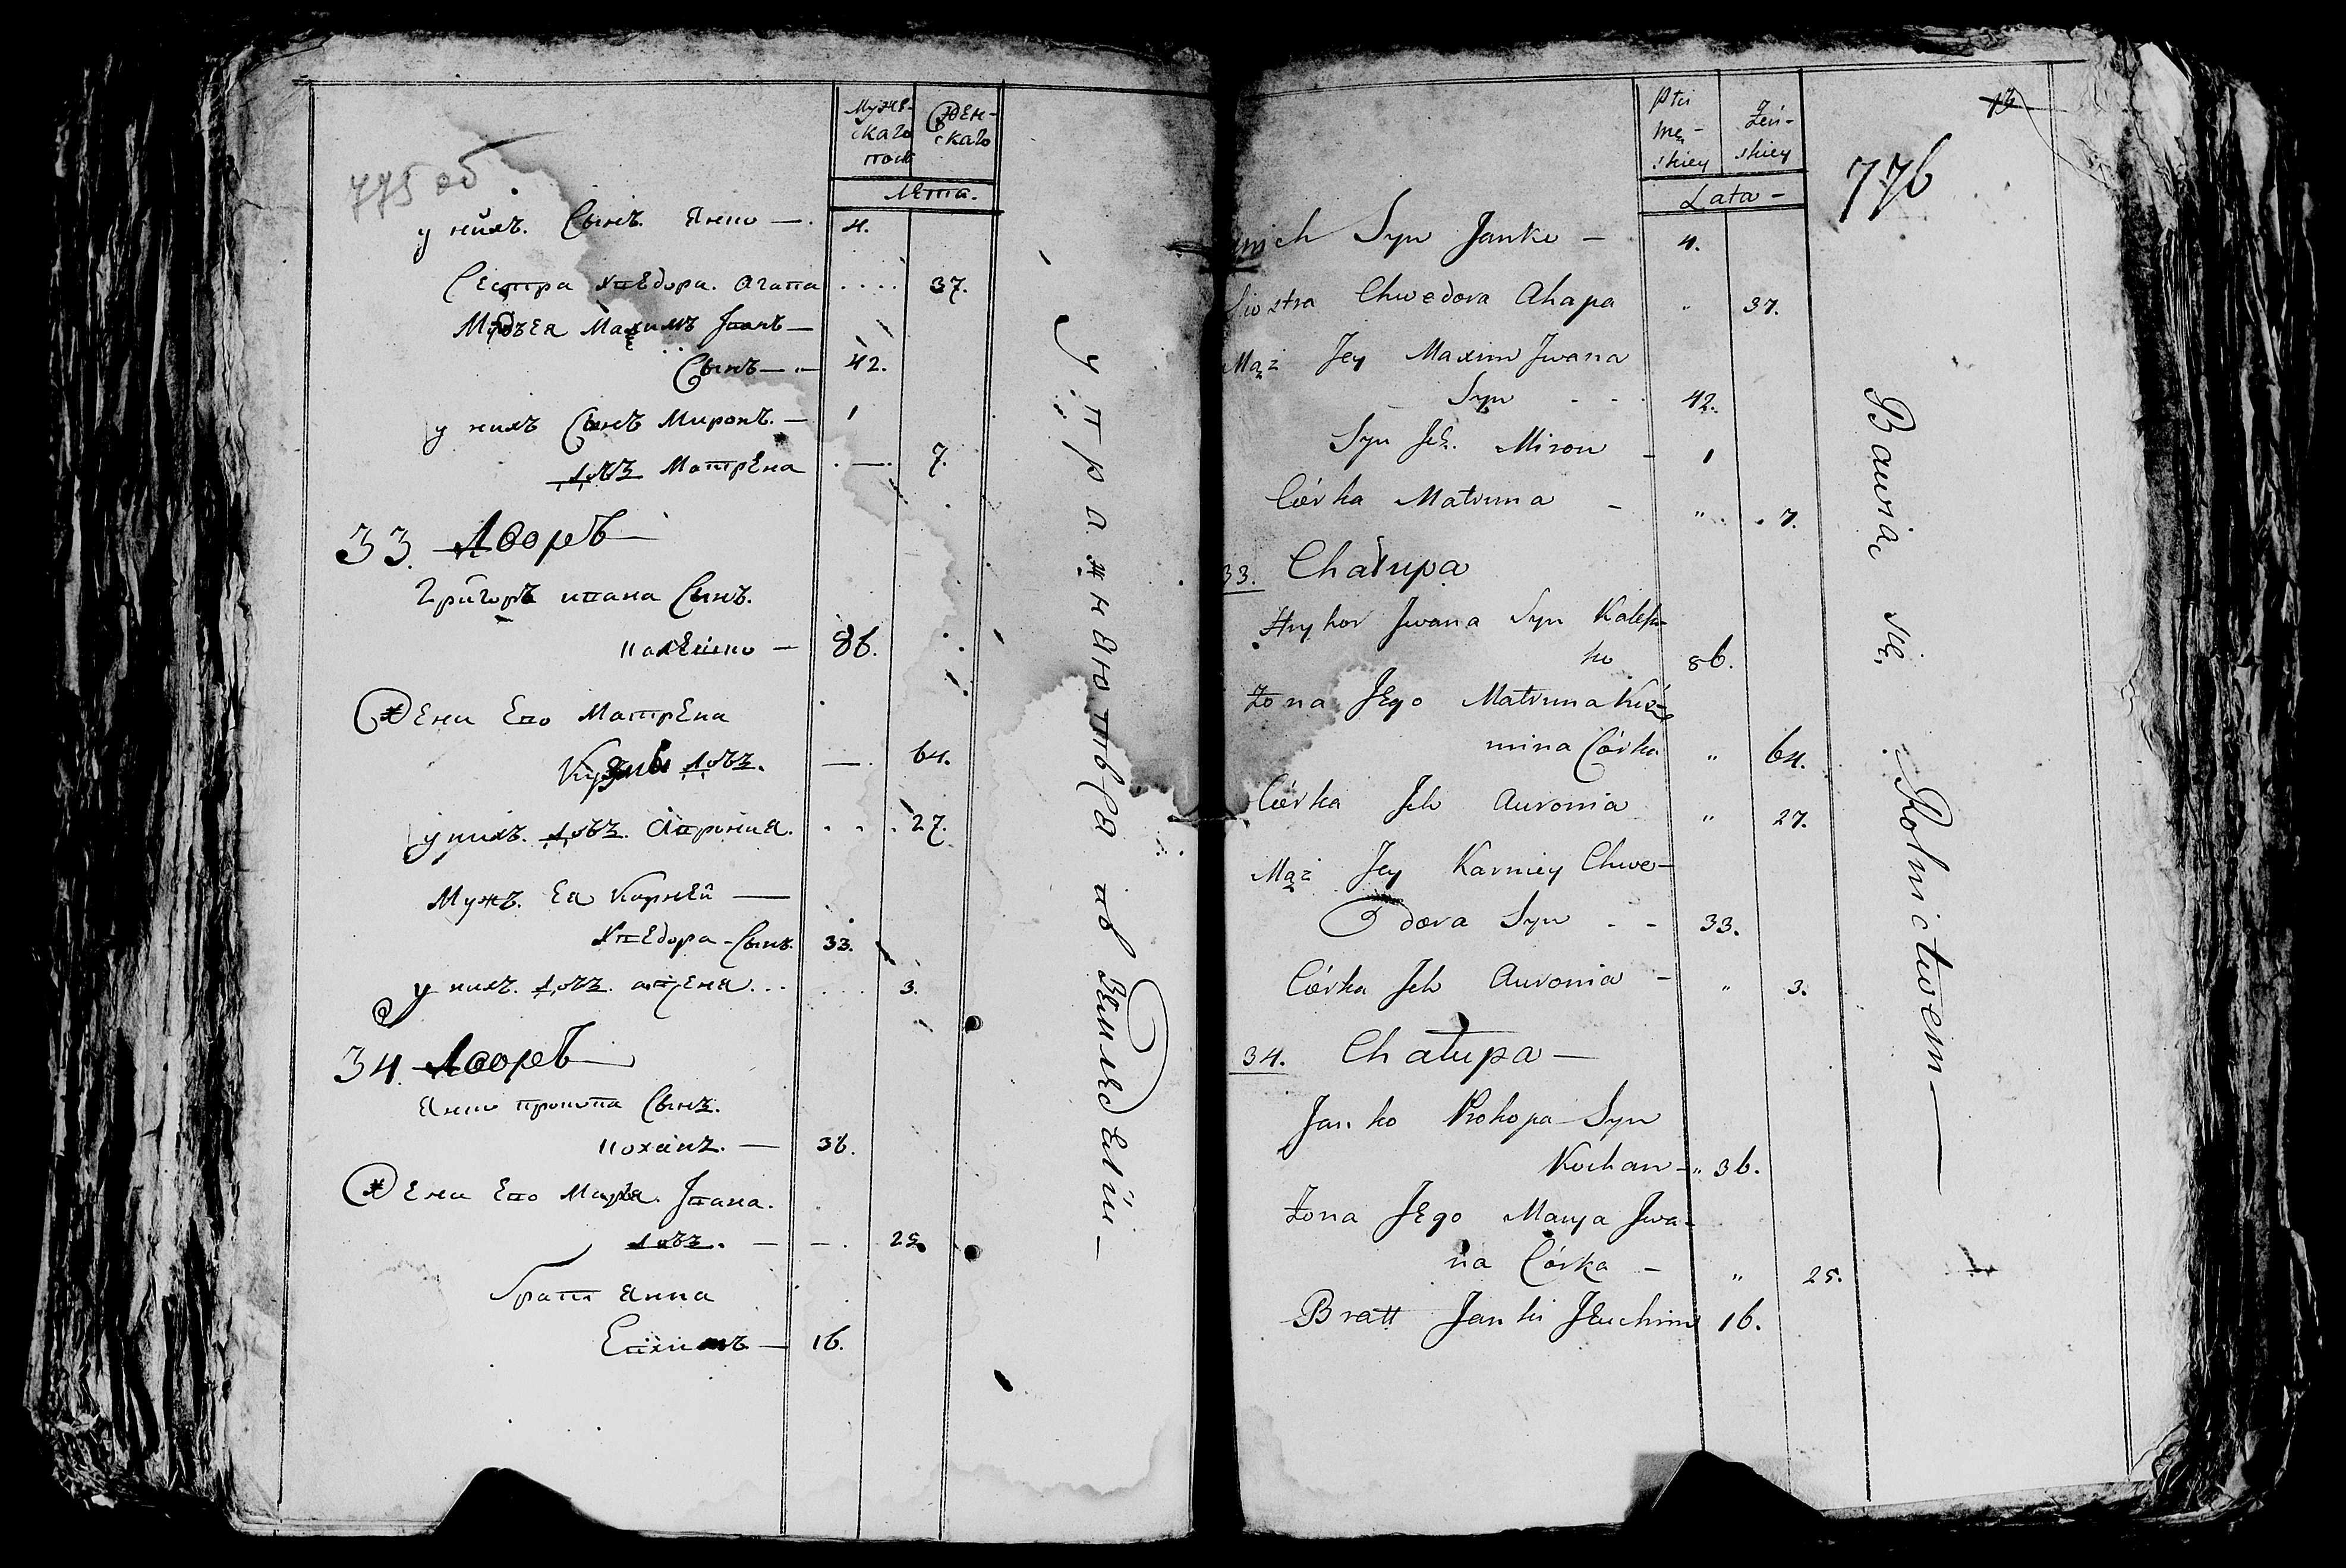 775 об
Муже-
скаго
пола
Жен-
скаго
Лета.
у нихъ. Сынъ. Янко —
4.
Сестра Хведора. Агапа
37.
Мужъ Ея Махимъ Іванъ —
Сынъ —
42.
у нихъ Сынъ Миронъ. —
1
дочь Матрена
7.
33. Дворъ
Григоръ ивана Сынъ.
калешко —
86.
Жена Ево Матрена
Кузмы дочь.
64.
у нихъ. дочь. Апрония.
27.
Мужъ. Ея Корней —
Хведора - Сынъ.
33.
у нихъ. дочь.
3.
34. Дворъ
Янко прокопа Сынъ.
коханъ. —
36.
Жена Ево Марья. Івана.
дочь. —
25.
Братъ Янка
Евхимъ —
16.
Упражняютъся въ Земледелии —
Płci
Mę-
skiey
Żeń-
skiey
Lata -
13
776
unich Syn Janko —
4.
Siostra Chwedora Ahapa
"
37.
Mąż Jey Maxim Jwana
Syn
42.
Syn Jch. Miron -
1
Córka Matruna -
"
7.
33. Chałupa
Hryhor Jwana Syn Kalesz-
ko
86.
Żona Jego Matruna Kuź-
mina Córka
"
64.
Córka Jch Auronia
"
27.
Mąż Jey Karniey Chwe-
dora Syn - -
33.
Córka Jch Auronia -
"
3.
34. Chałupa —
Janko Prokopa Syn
Kochan -
" 36.
Żona Jego Marya Jwa-
na Córka -
"
25.
Bratt Janki Jeuchim
16.
Bawią się Rolnictwem —